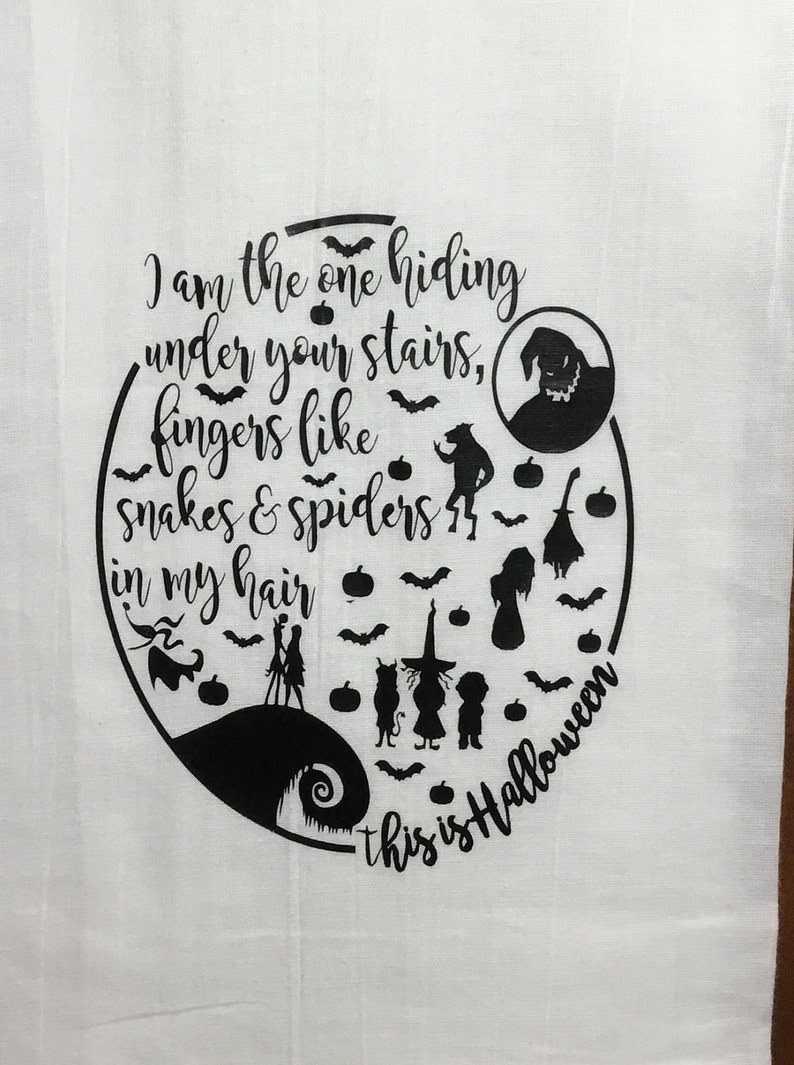 I am the one hiding
under your stairs,
fingers like
snakes & spiders
in my hair
this is Halloween